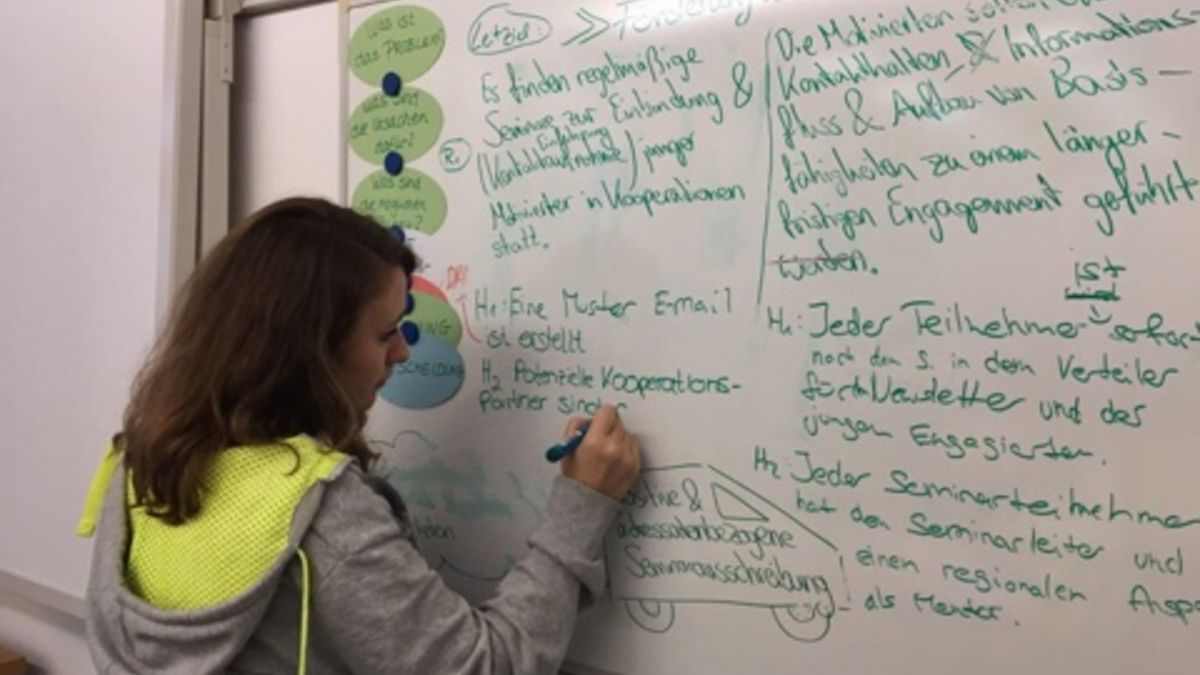 Was ist
das PROBLEM?
Was sind
die Ursachen
dafür?
Was sind
die möglichen
Letziel:
>> Förderung
Es finden regelmäßige
Seminare zur Einbindung &
Einführung
R1
(Kontaktaufnahme) junger
Motivierter in Kooperationen
statt.
H1: Eine Muster E-mail
ist erstellt
H2 Potenzielle Kooperations-
partner sind
&
adressatenbezogene
Seminarausschreibung
Die Motivierten sollen
Kontakthalten, & Informations-
fluss & Aufbau von Basis-
fähigkeiten zu einem länger-
fristigen Engagement geführt
werden.
ist
H1: Jeder Teilnehmer sofort
nach dem S. in dem Verteiler
für den Newsletter und der
jungen Engagierten.
H2: Jeder Seminarteilnehmer
hat den Seminarleiter und
einen regionalen
als Mentor.